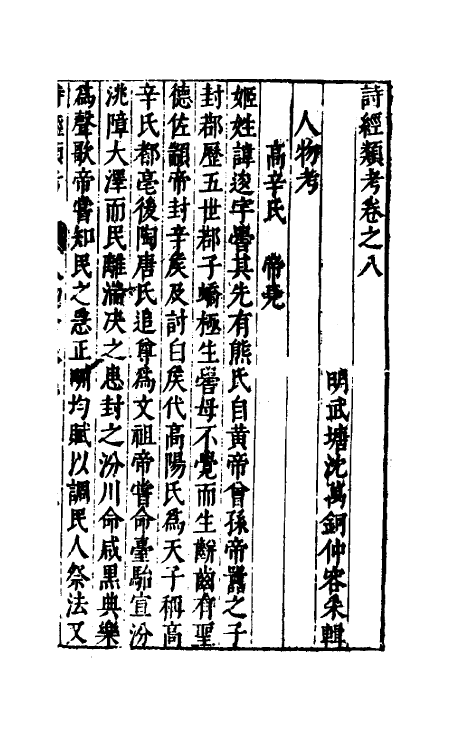 詩經類考卷之八
明武塘沈萬鈳仲容朱輯
人物考
高辛氏　帝堯
姬姓諱逡字嚳其先有熊氏自黃帝曾孫帝嚚之子
封都歷五世都子蟜極生嚳母不覺而生齠齒有聖
德佐顓帝封辛侯及討白侯代高陽氏爲天子稱高
辛氏都亳後陶唐氏追尊爲文祖帝嘗命臺駘宣汾
洮障大澤而民離滿决之患封之汾川命咸黑典樂
爲聲歌帝嘗知民之惡正畎均賦以調民人祭法又